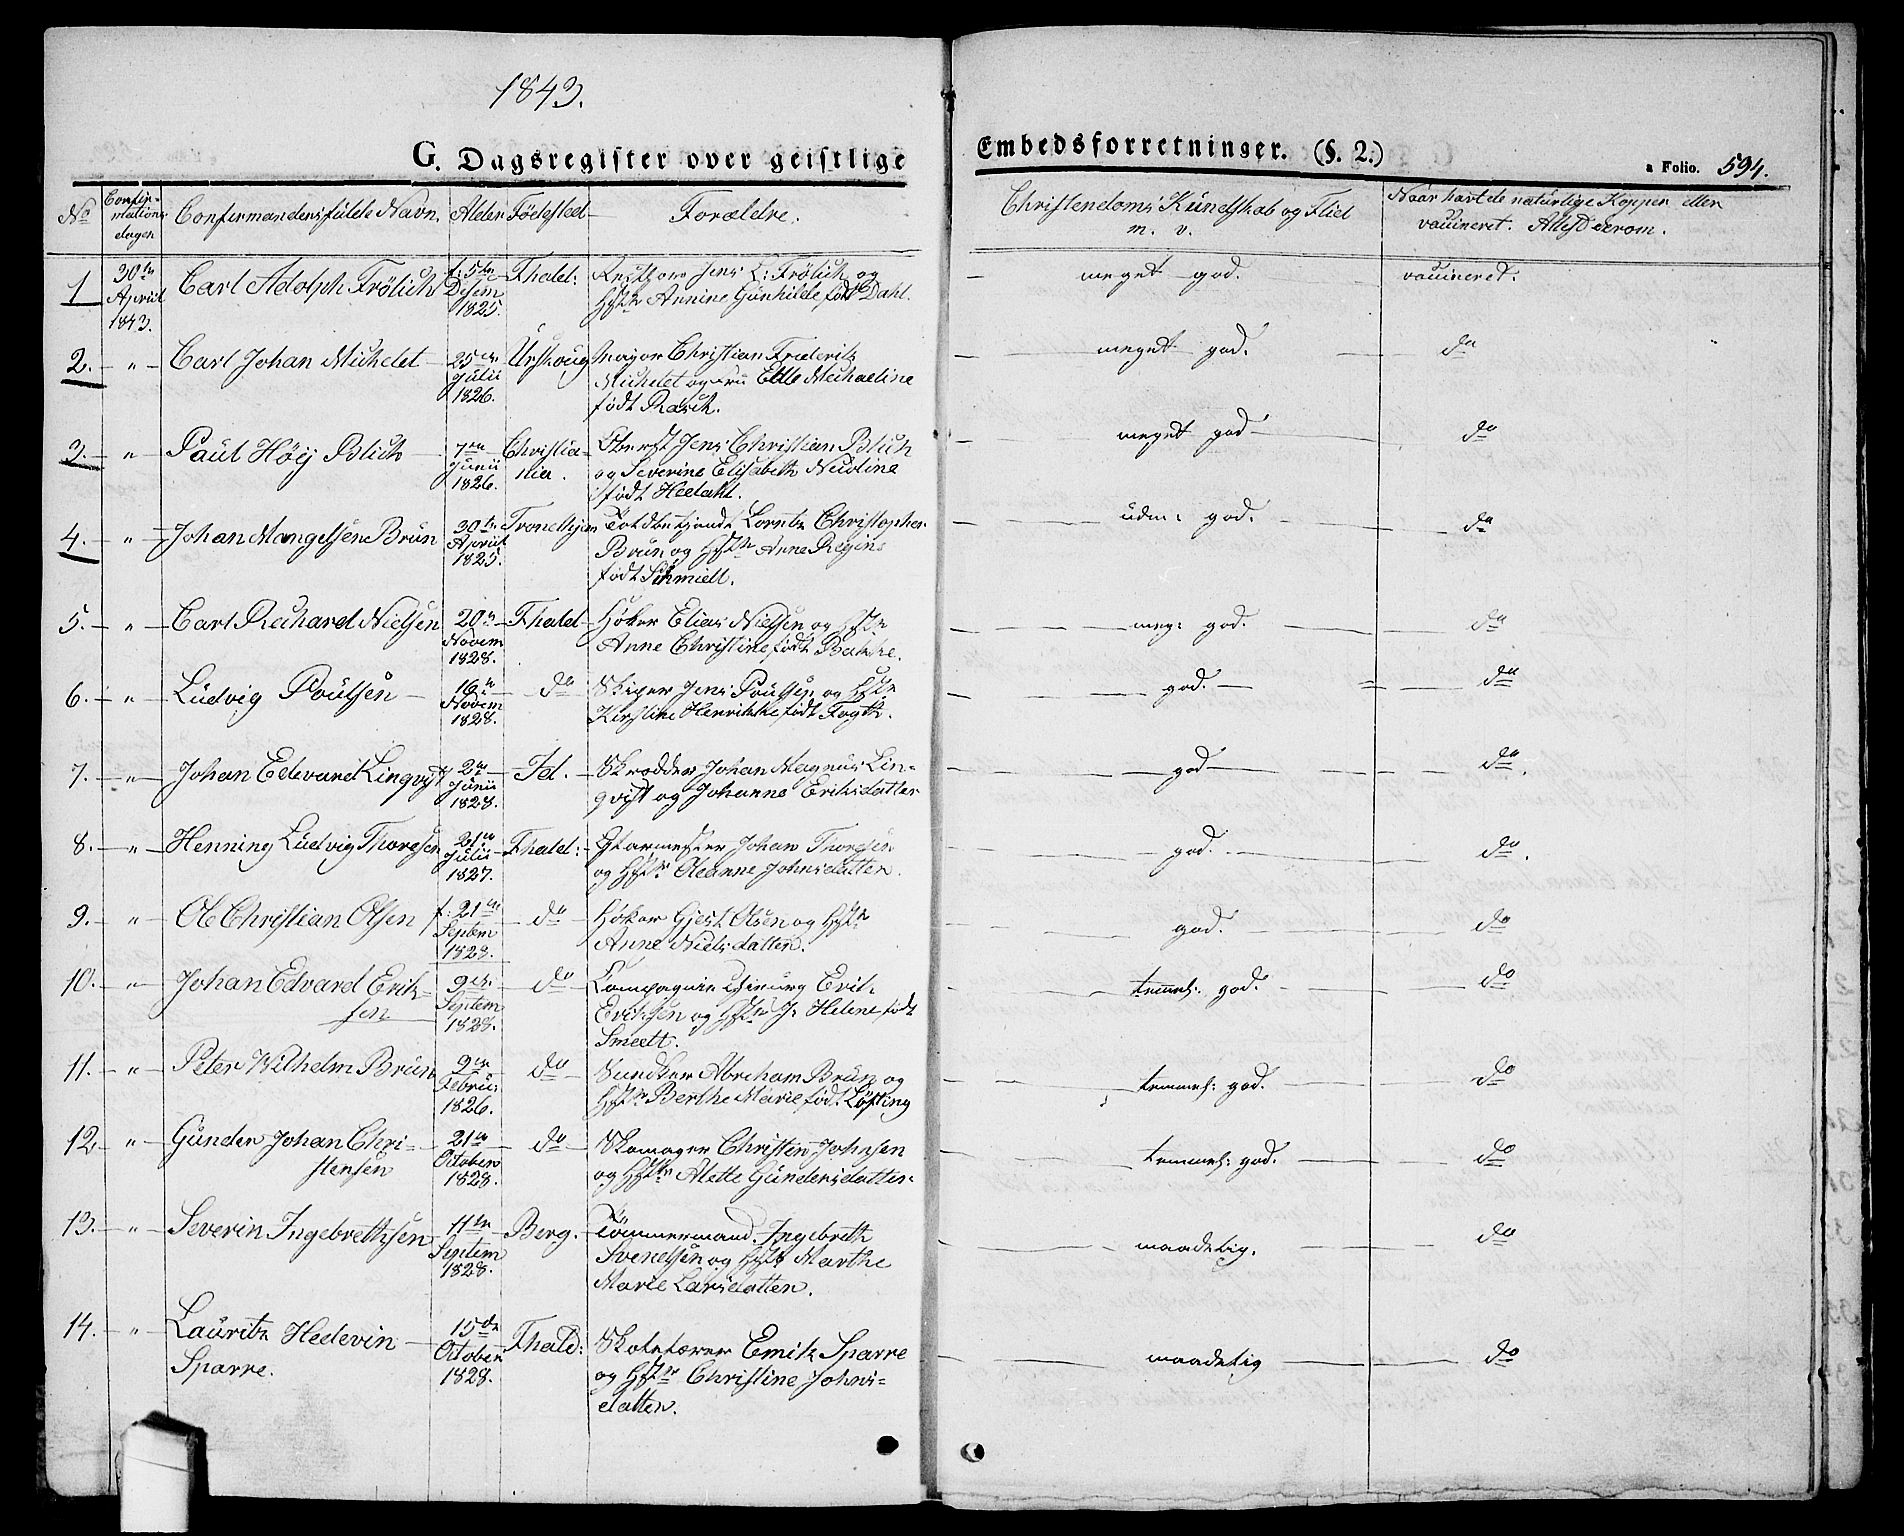 1843.
G. Dagsregister over geistlige
Embedsforretninger. (§. 2.)
a Folio. 594.
No
Confir-
mations
dagen
Confirmandens fulde Navn.
Alder
Fødested
Forældre.
Christendoms Kundskab og Flid
m. v.
Naar havt de naturlige Kopper eller
vaccineret. Attest derom.
1
30te
April
1843.
Carl Adolph Frölich
f: 5te
Desem
1825.
Fhald:
Jens L: Frölich og
Hstr Annine Gunhilde født Dahl.
meget god.
vaccineret.
2.
"
Carl Johan Michelet
25de
Julii
1826.
Urskoug
Major Christian Frederik
Michelet og Fru Elle Michaeline
født Rasch.
meget god.
do
3.
"
Paul Höij Blich
7de
Junii
1826.
Christia-
nia.
Oberst Jens Christian Blich
og Severine Elisabeth Nicoline
født Hedahl.
meget god
do
4.
"
Johan Mangelsen Brun
30te
April
1825.
Trondhjem
Toldbetjendt Lorntz Christopher
Brun og Hstr Anne Regine
født Schmidt.
udm: god.
do
5.
"
Carl Richard Nielsen
20de
Novem
1828.
Fhald
Høker Elias Nielsen og Hstr
Anne Christine født Bakke.
meg: god.
do
6.
"
Ludvig Poulsen
16de
Novem
1828.
do
Skiper Jens Poulsen og Hstr
Kirstine Henrikke født Fogth.
god.
do
7.
"
Johan Edvard Linqvist
2de
Junii
1828.
Id.
Skrædder Johan Magnus Lin-
qvist og Johanne Eriksdatter
god
do.
8.
"
Henning Ludvig Thoresen
21de
Julii
1827.
Fhald:
Johan Thoresen
og Hstr Oleanne Johnsdatter.
god.
do.
9.
"
Ole Christian Olsen
f: 21de
Septem
1828.
do
Høker Gjest Olsen og Hstr
Anne Nielsdatter.
god.
do
10.
"
Johan Edvard Erik-
sen
9de
Septem
1828.
do
Compagnie Chirurg Erik
Eriksen og Hstr J: Helene født
Smedt.
temmel: god.
do
11.
"
Peter Wilhelm Brun
9de
Febru
1826.
do
Snedker Abraham Brun og
Hstr Berthe Marie fød: Löfting
temmel: god.
do
12
"
Gunder Johan Chri-
stensen
21de
October
1828.
do
Skomager Christen Johnsen
og Hstr Mette Gundersdatter
temmel: god.
do
13.
"
Severin Ingebrethsen
11te
Septem
1828.
Berg.
Tömmermand Ingebreth
Svendsen og Hstr Marthe
Marie Larsdatter.
maadelig.
do
14.
"
Lauritz Hedevin
Sparre.
15de
October
1828.
Fhald:
Skolelærer Emik Sparre
og Hstr Christine Johns-
datter.
maadelig
do